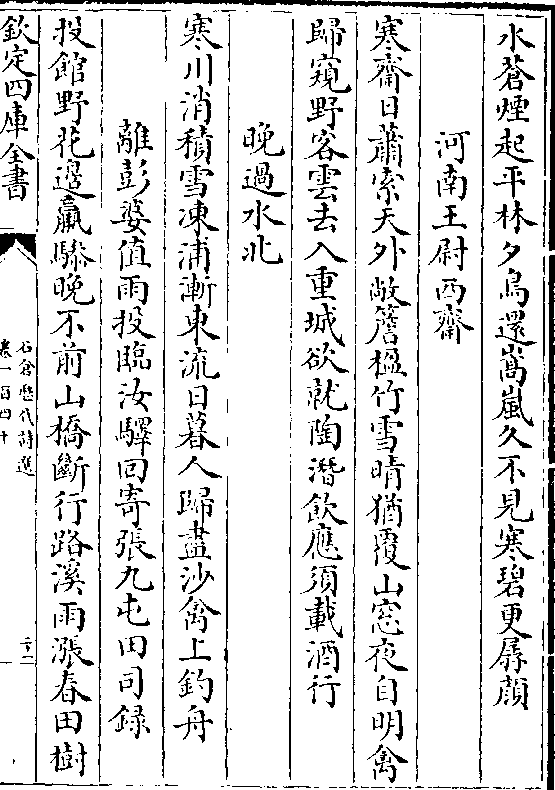 水蒼煙起平林夕鳥還嵩嵐久不見寒碧更孱顔
河南王尉西齋
寒齋日蕭索天外敞簷楹竹雪晴猶覆山窓夜自明禽
歸窺野客雲去入重城欲就陶潛飲應須載酒行
晚過水北
寒川消積雪凍浦漸東流日暮人歸盡沙禽上釣舟
離彭婺值雨投臨汝驛回寄張九屯田司錄
投館野花邊羸驂晚不前山橋斷行路溪雨漲春田樹
欽定四庫全書
石倉歷代詩選
卷一百四十
二十二